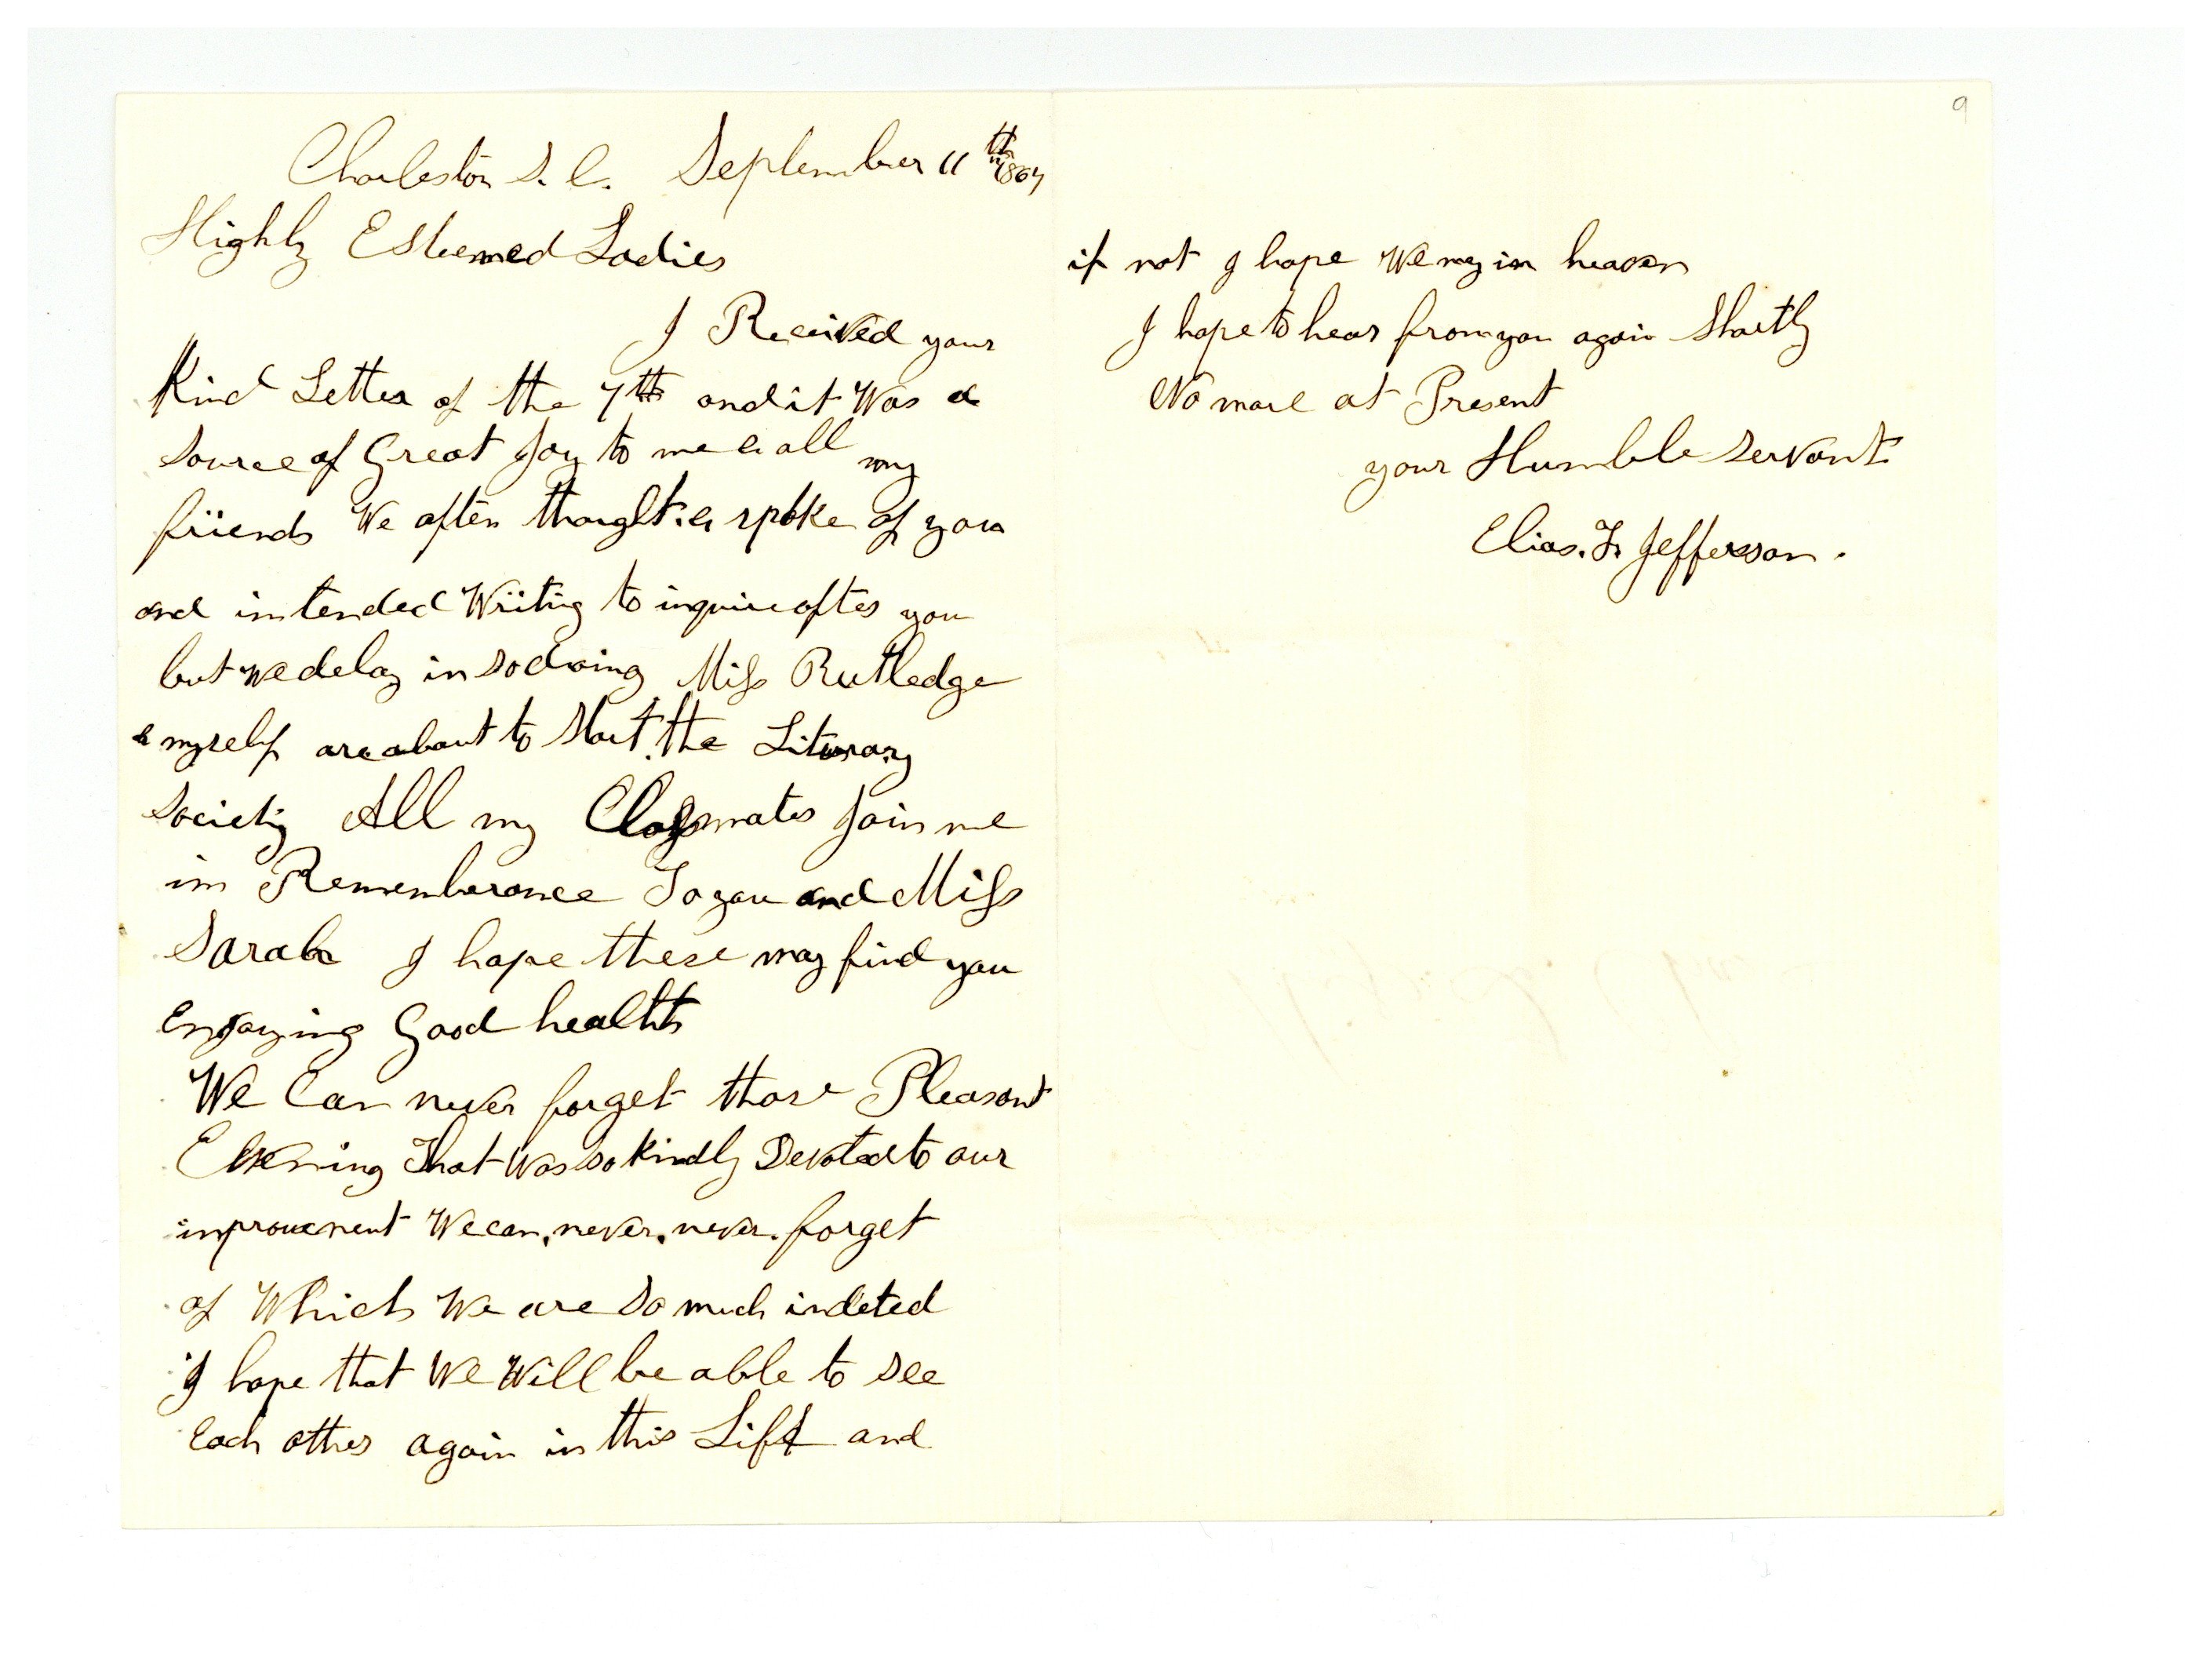 Charleston S. C. September 11th 1867
Highly Esteemed Ladies
I Received your
Kind Letter of the 7th and it Was a
source of Great Joy to me & all my
friends We often thought & spoke of you
and intended Writing to inquire after you
but we delay in so doing Miss Rutledge
& myself are about to Start the Literary
Society All my Classmates Join me
in Rememberance To you and Miss
Sarah I hope these may find you
Enjoying Good health
We Can never forget those Pleasant
Evening That Was so Kindly Devoted to our
improvement We can, never, never. forget
of Which We are So much indeted
I hope that We Will be able to see
Each other again in this Life and
9
if not I hope We may in heaven
I hope to hear from you again Shortly
No more at Present
your Humble Servant
Elias. F. Jefferson.